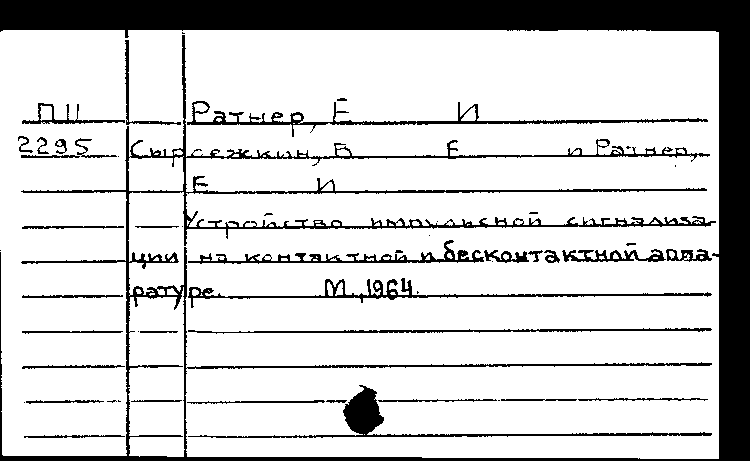 П11 Ратнер, Е И
2295 Сырсежкин, В Е и Ратнер,
Е И
Устройство импульсной сигнализа-
ции на контактной и бесконтактной аппа-
ратуре. М., 1964.